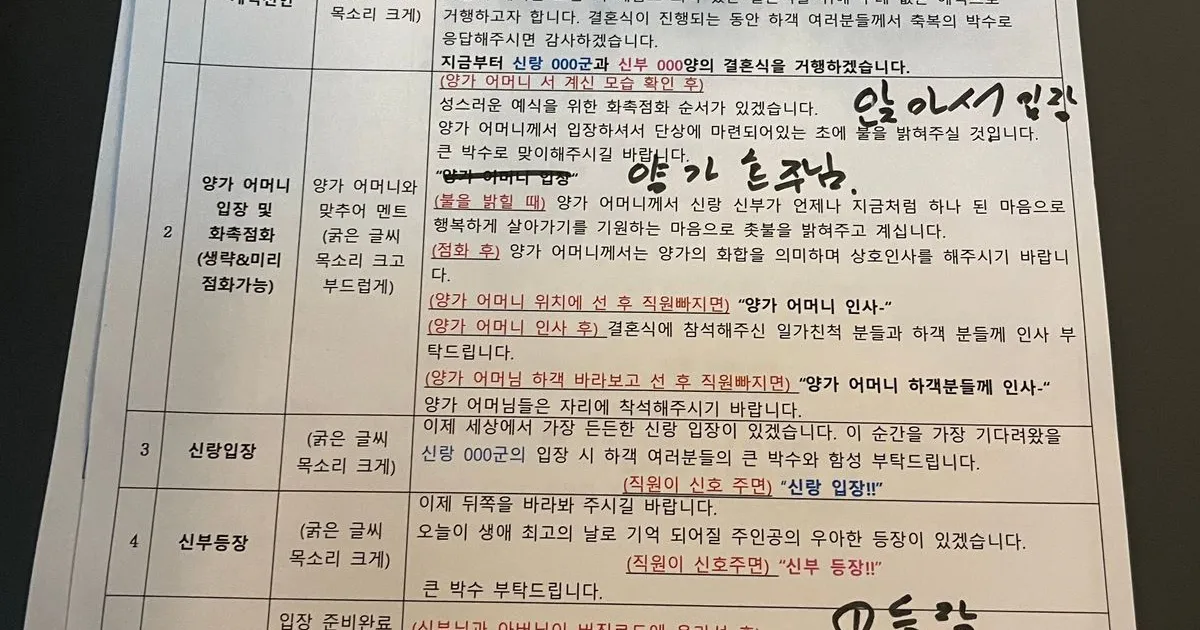 개식선언
목소리 크게)
거행하고자 합니다. 결혼식이 진행되는 동안 하객 여러분들께서 축복의 박수로
응답해주시면 감사하겠습니다.
지금부터 신랑 000군과 신부 000양의 결혼식을 거행하겠습니다.
2
양가 어머니
입장 및
화촉점화
(생략&미리
점화가능)
양가 어머니와
맞추어 멘트
(굵은 글씨
목소리 크고
부드럽게)
(양가 어머니 서 계신 모습 확인 후)
성스러운 예식을 위한 화촉점화 순서가 있겠습니다.
앞 아서 입장
양가 어머니께서 입장하셔서 단상에 마련되어있는 초에 불을 밝혀주실 것입니다.
큰 박수로 맞이해주시길 바랍니다.
"양가 어머니 입장"
양가 혼주님.
(불을 밝힐 때) 양가 어머니께서 신랑 신부가 언제나 지금처럼 하나 된 마음으로
행복하게 살아가기를 기원하는 마음으로 촛불을 밝혀주고 계십니다.
(점화 후) 양가 어머니께서는 양가의 화합을 의미하며 상호인사를 해주시기 바랍니
다.
(양가 어머니 위치에 선 후 직원빠지면) "양가 어머니 인사-"
(양가 어머니 인사 후) 결혼식에 참석해주신 일가친척 분들과 하객 분들께 인사 부
탁드립니다.
(양가 어머님 하객 바라보고 선 후 직원빠지면) "양가 어머니 하객분들께 인사-"
양가 어머님들은 자리에 착석해주시기 바랍니다.
3
신랑입장
(굵은 글씨
목소리 크게)
이제 세상에서 가장 든든한 신랑 입장이 있겠습니다. 이 순간을 가장 기다려왔을
신랑 000군의 입장 시 하객 여러분들의 큰 박수와 함성 부탁드립니다.
(직원이 신호 주면) "신랑 입장!!"
4
신부등장
(굵은 글씨
목소리 크게)
이제 뒤쪽을 바라봐 주시길 바랍니다.
오늘이 생애 최고의 날로 기억 되어질 주인공의 우아한 등장이 있겠습니다.
(직원이 신호주면) "신부 등장!!"
큰 박수 부탁드립니다.
① 등장
입장 준비완료
(신부님과 아버님이 버진로드에 올라서 후)